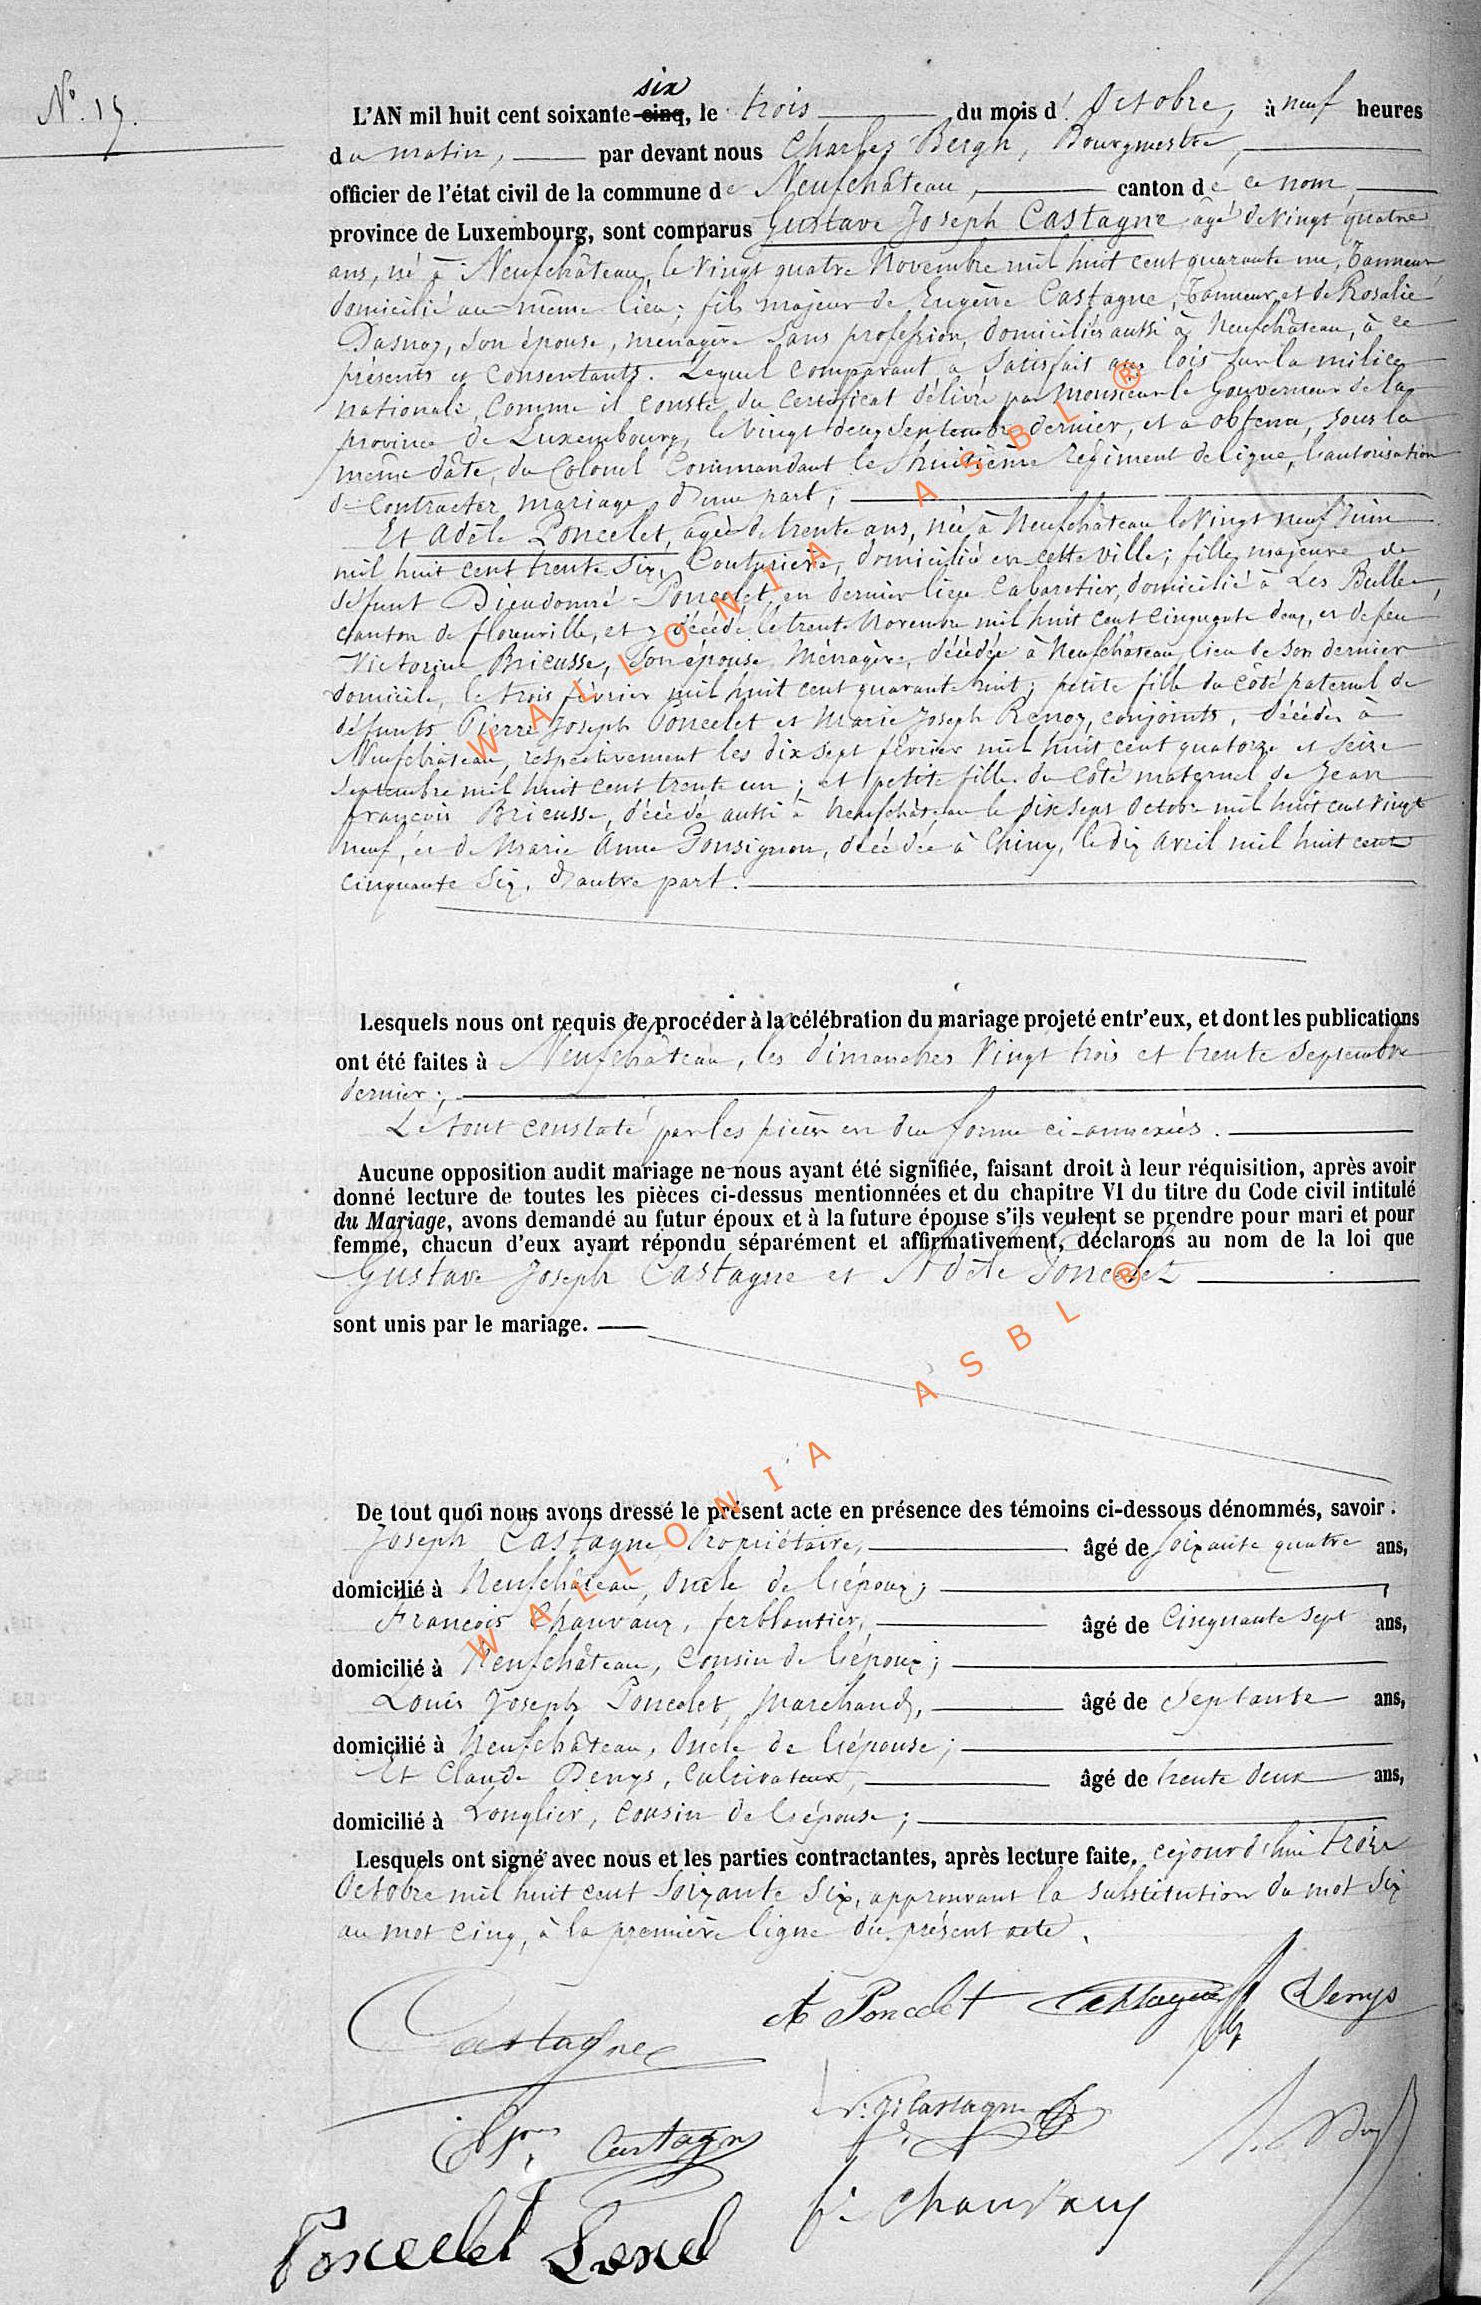 N° 17.
six
L'AN mil huit cent soixante-cinq, le trois du mois d' Octobre, à neuf heures
du matin, par devant nous Charles Bergh, Bourgmestre,
officier de l'état civil de la commune de Neufchâteau, canton de ce nom,
province de Luxembourg, sont comparus Gustave Joseph Castagne âgé de vingt quatre
ans, né à Neufchâteau, le vingt quatre Novembre mil huit cent quarante un, Tanneur,
domicilié au même lieu; fils majeur de Eugène Castagne, Tanneur, et de Rosalie
Dasnoy, son épouse, ménagère sans profession, domiciliés aussi à Neufchâteau, à ce
présents et consentants. Lequel comparant a satisfait aux lois sur la milice
nationale, comme il conste du certificat délivré par Monsieur le Gouverneur de la
province de Luxembourg, le vingt deux Septembre dernier, et a obtenu, sous la
même date, du Colonel Commandant le huitième régiment de ligne, l'autorisation
de contracter mariage, d'une part;
Et Adèle Poncelet, agée de trente ans, née à Neufchâteau le vingt neuf Juin
mil huit cent trente six, Couturière, domiciliée en cette ville; fille majeure de
défunt Dieudonné Poncelet, en dernier lieu Cabaretier, domicilié à Les Bulles,
canton de florenville, et y décédé le trente Novembre mil huit cent cinquante deux, et de feu
Victorine Bricusse, son épouse, Ménagère, décédée à Neufchâteau, lieu de son dernier
domicile, le trois février mil huit cent quarante huit; petite fille du côté paternel de
défunts Pierre Joseph Poncelet et Marie Joseph Renoz, conjoints, décédés à
Neufchâteau, respectivement les dix sept février mil huit cent quatorze et seize
Septembre mil huit cent trente un; et petite fille du côté maternel de Jean
François Bricusse, décédé aussi à Neufchâteau le dix sept Octobre mil huit cent vingt
neuf, et de Marie Anne Ponsignon, décédée à Chiny, le dix Avril mil huit cent
cinquante six, d'autre part.
Lesquels nous ont requis de procéder à la célébration du mariage projeté entr'eux, et dont les publications
ont été faites à Neufchâteau, les dimanches vingt trois et trente Septembre
dernier;
Le tout constaté par les pièces en due forme ci-annexées.
Aucune opposition audit mariage ne nous ayant été signifiée, faisant droit à leur réquisition, après avoir
donné lecture de toutes les pièces ci-dessus mentionnées et du chapitre VI du titre du Code civil intitulé
du Mariage, avons demandé au futur époux et à la future épouse s'ils veulent se prendre pour mari et pour
femme, chacun d'eux ayant répondu séparément et affirmativement, déclarons au nom de la loi que
Gustave Joseph Castagne et Adèle Poncelet
sont unis par le mariage.
De tout quoi nous avons dressé le présent acte en présence des témoins ci-dessous dénommés, savoir.
Joseph Castagne Propriétaire, âgé de soixante quatre ans,
domicilié à Neufchâteau, Oncle de l'époux;
François Chauvaux, ferblantier, âgé de Cinquante sept ans,
domicilié à Neufchâteau, Cousin de l'époux;
Louis Joseph Poncelet, Marchand, âgé de Septante ans,
domicilié à Neufchâteau, Oncle de l'épouse;
Et Claude Denys, Cultivateur, âgé de trente deux ans,
domicilié à Longlier, Cousin de l'épouse;
Lesquels ont signé avec nous et les parties contractantes, après lecture faite, cejourd'hui trois
Octobre mil huit cent soixante six, approuvant la substitution du mot six
au mot cinq, à la première ligne du présent acte.
Castagne
A Poncelet
Castagne
Denys
Castagne
Castagne
f. Chauvaux
Poncelet
WALLONIA ASBL ®
WALLONIA ASBL ®